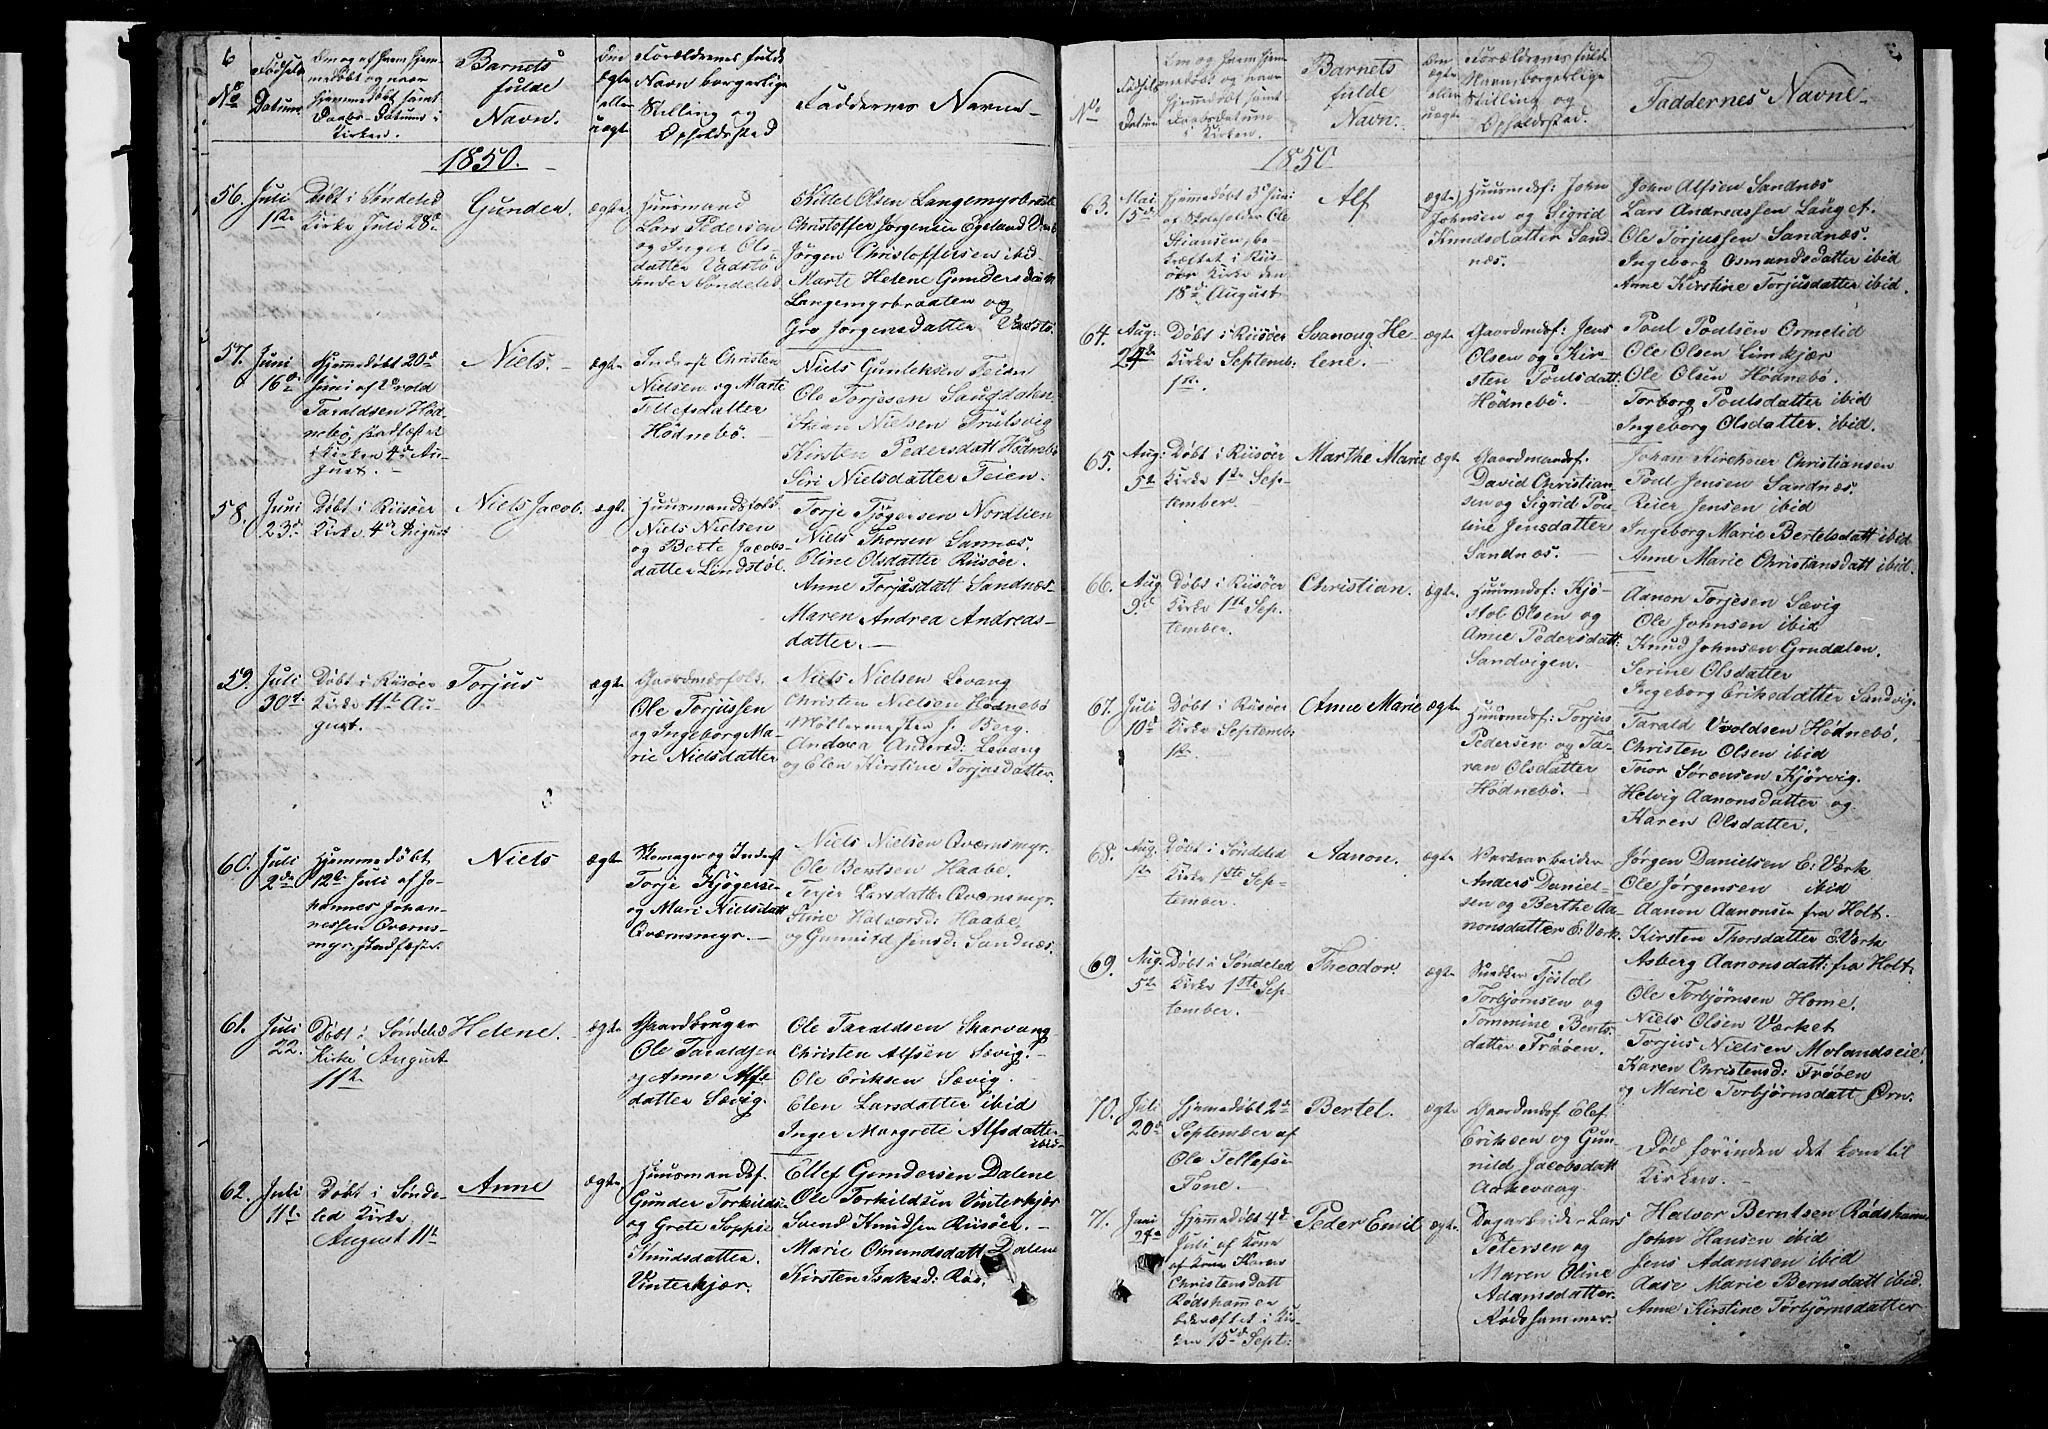 6
No
Fødsels
Datum.
Om og af hvem hjem-
medøbt og naar
hjemmedøbt samt
Daabs-Datum i
Kirken.
Barnets
fulde
Navn.
Om
ægte
eller
uægte
Forældrenes fulde
Navn borgerlige
Stilling og
Opholdssted
Faddernes Navne
1850.
56.
Juli
1ste
Døbt i Søndeled
Kirke Juli 28de
Gunder.
ægte
Huusmand
Lars Pedersen
og Inger Ols-
datter Vadstø
under Søndeled
Kittel Olsen Langemyrbraate
Christoffer Jørgensen Egeland
Jørgen Christoffersen ibid
Marte Helene Gundersdatter
Langemyrbraaten og
Gro Jørgensdatter Vadstø.
57.
Juni
16de
Hjemmedøbt 20de
Juni af Uvold
Taraldsen Hød-
nebø, stadfæstet
i Kirken 4de Au-
gust.
Niels.
ægte
Inderst Christen
Nielsen og Marte
Tellefsdatter
Hødnebø.
Niels Gunleksen Feien
Ole Torjesen Saugdalen
Stian Nielsen Trulsvig
Kirsten Pedersdatt Hødnebø
Siri Nielsdatter Feien.
58.
Juni
23de
Døbt i Riisøer
Kirke 4de August
Niels Jacob.
ægte
Huusmandsfolk
Niels Nielsen
og Berte Jacobs-
datter Lindstøl
Torje Tjøgersen Nordlien
Niels Thorsen Sannæs.
Oline Olsdatter Riisøer.
Anne Torjusdatt Sandnæs
Maren Andrea Andreas-
datter.
59.
Juli
30te
Døbt i Riisøer
Kirke 11te Au-
gust.
Torjus
ægte
Gaardmdsfolk.
Ole Torjussen
og Ingeborg Ma-
rie Nielsdatter
Niels Nielsen Levang
Christen Nielsen Hødnebø
Møllermester J. Berg.
Andrea Andersd: Levang
og Elen Kirstine Torjusdatter.
60.
Juli
2den
Hjemmedøbt
12te Juli af Jo-
hannes Johan-
nessen Qværns-
myr, stadfæstet
Niels
ægte
Skomager og Inderst
Torje Kjøgersen
og Mari Nielsdatt
Qværnsmyr.
Niels Nielsen Qværnsmyr.
Ole Bentsen Haabe.
Terjer Larsdatter Qværnsmyr.
Stine Halvorsd: Haabe
og Gunnild Jensd: Sandnæs.
61.
Juli
22.
Døbt i Søndeled
Kirke August
11te
Helene.
ægte
Gaardbruger
Ole Taraldsen
og Anne Alfs-
datter Sævig.
Ole Taraldsen Skarvang
Christen Alfsen Sævig.
Ole Eriksen Sævig.
Elen Larsdatter ibid
Inger Margrete Alfsdatter
ibid
62.
Juli
11te
Døbt i Sønde-
led Kirke
August 11te
Anne
ægte
Huusmandsf.
Gunder Torkilds-
og Grete Soppie
Knudsdatter.
Vinterkjær.
Ellef Gundersen Dalene
Ole Torkildsen Vinterkjær
Svend Knudsen Riisøer.
Marie Omundsdatt Dalene
Kirsten Isaksd: Røs.
No
Fødsels
Datum
Om og hvem hjem-
medøbt og naar
hjemmedøbt samt
Daabsdatum
i Kirken.
Barnets
fulde
Navn.
Om
ægte
eller
uægte
Forældrenes fulde
Navn, borgerlige
Stilling og
Opholdssted.
Faddernes Navne
1850
63.
Mai
15de
Hjemmedøbt 3de Juni
af Skoleholder Ole
Stiansen, be-
kræftet i Riis-
øer Kirke den
18de August
Alf
ægte
Huusmdsf: John
Johnsen og Sigrid
Knudsdatter Sand-
næs.
John Alfsen Sandnæs
Lars Andreassen Lauget.
Ole Torjussen Sandnæs.
Ingeborg Osmandsdatter ibid
Anne Kirstine Torjusdatter ibid.
64.
Aug:
24de
Døbt i Riisøer
Kirke Septemb:
1ste.
Svanaug He-
lene.
ægte
Gaardmdsf: Jens
Olsen og Kir-
sten Poulsdatt:
Hødnebø.
Poul Poulsen Ormelid
Ole Olsen Limkjær
Ole Olsen Hødnebø.
Torborg Poulsdatter ibid
Ingeborg Olsdatter. ibid.
65.
Aug:
5te
Døbt i Riisøer
Kirke 1ste Sep-
tember.
Marthe Marie
ægte
Gaardmandsf.
David Christian-
sen og Sigrid Pou-
line Jensdatter
Sandnæs.
Johan Kirchner Christiansen
Poul Jensen Sandnæs.
Reier Jensen ibid
Ingeborg Marie Bertelsdatt ibid
Anne Marie Christansdatt ibid.
66.
Aug
9de
Døbt i Riisøer
Kirke 1ste Sep-
tember.
Christian.
ægte.
Huusmdsf: Kjø-
stol Olsen og
Anne Pedersdatt:
Sandvigen.
Aanon Torjesen Sævig
Ole Johnsen ibid
Knud Johnsen Grudalen.
Serine Olsdatter
Ingeborg Eriksdatter Sandvig.
67.
Juli
10de
Døbt i Riisøer
Kirke Septemb:
1ste.
Anne Marie
ægte
Huusmdsf: Torjus
Pedersen og Ta-
ran Olsdatter
Hødnebø.
Tarald Uvoldsen Hødnebø.
Christen Olsen ibid
Thor Sørensen Kjørvig.
Helvig Aanonsdatter og
Karen Olsdatter.
68.
Aug.
1ste
Døbt i Søndeled
Kirke 1ste Sep-
tember.
Aanon.
ægte
Værksarbeider
Anders Daniel-
sen og Berthe Aa-
nonsdatter E: Værk.
Jørgen Danielsen E: Værk
Ole Jørgensen ibid
Aanon Aanonsen fra Holt.
Kirsten Thorsdatter E: Værk
Asberg Aanonsdatt: fra Holt
69.
Aug.
5te
Døbt i Søndeled
Kirke 1ste Sep-
tember.
Theodor.
ægte
Snedker Tjøstol
Torbjørnsen og
Tommine Bents-
datter Frøøen.
Ole Torbjørnsen Home.
Niels Olsen Værket
Torjus Nielsen Molandseie.
Karen Christensd: Frøøen
og Marie Torbjørnsdatt Ørn.
70.
Juli
20de
Hjemmedøbt 2de
September af
Ole Tellefsen
Tone.
Bertel.
ægte
Gaardmdsf. Elef
Eriksen og Gun-
nild Jacobsdatt
Aakevaag
Død forinden det kom til
Kirken.
71.
Juni
Hjemmedøbt 4de
Juli af Kone
Karen
Christensdatt
Rødshammer
bekræftet i Kir-
ken 15de Septr:
Peder Emil
ægte
Dagarbeider Lars
Petersen og
Maren Oline
Adamsdatter.
Rødshammer.
Halvor Berntsen Rødshammer
John Hansen ibid
Jens Adamsen ibid
Aase Marie Bernsdatt ibid.
Anne Kirstine Torbjørnsdatter